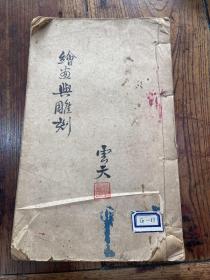 繪畫與雕刻
雲天
G-17